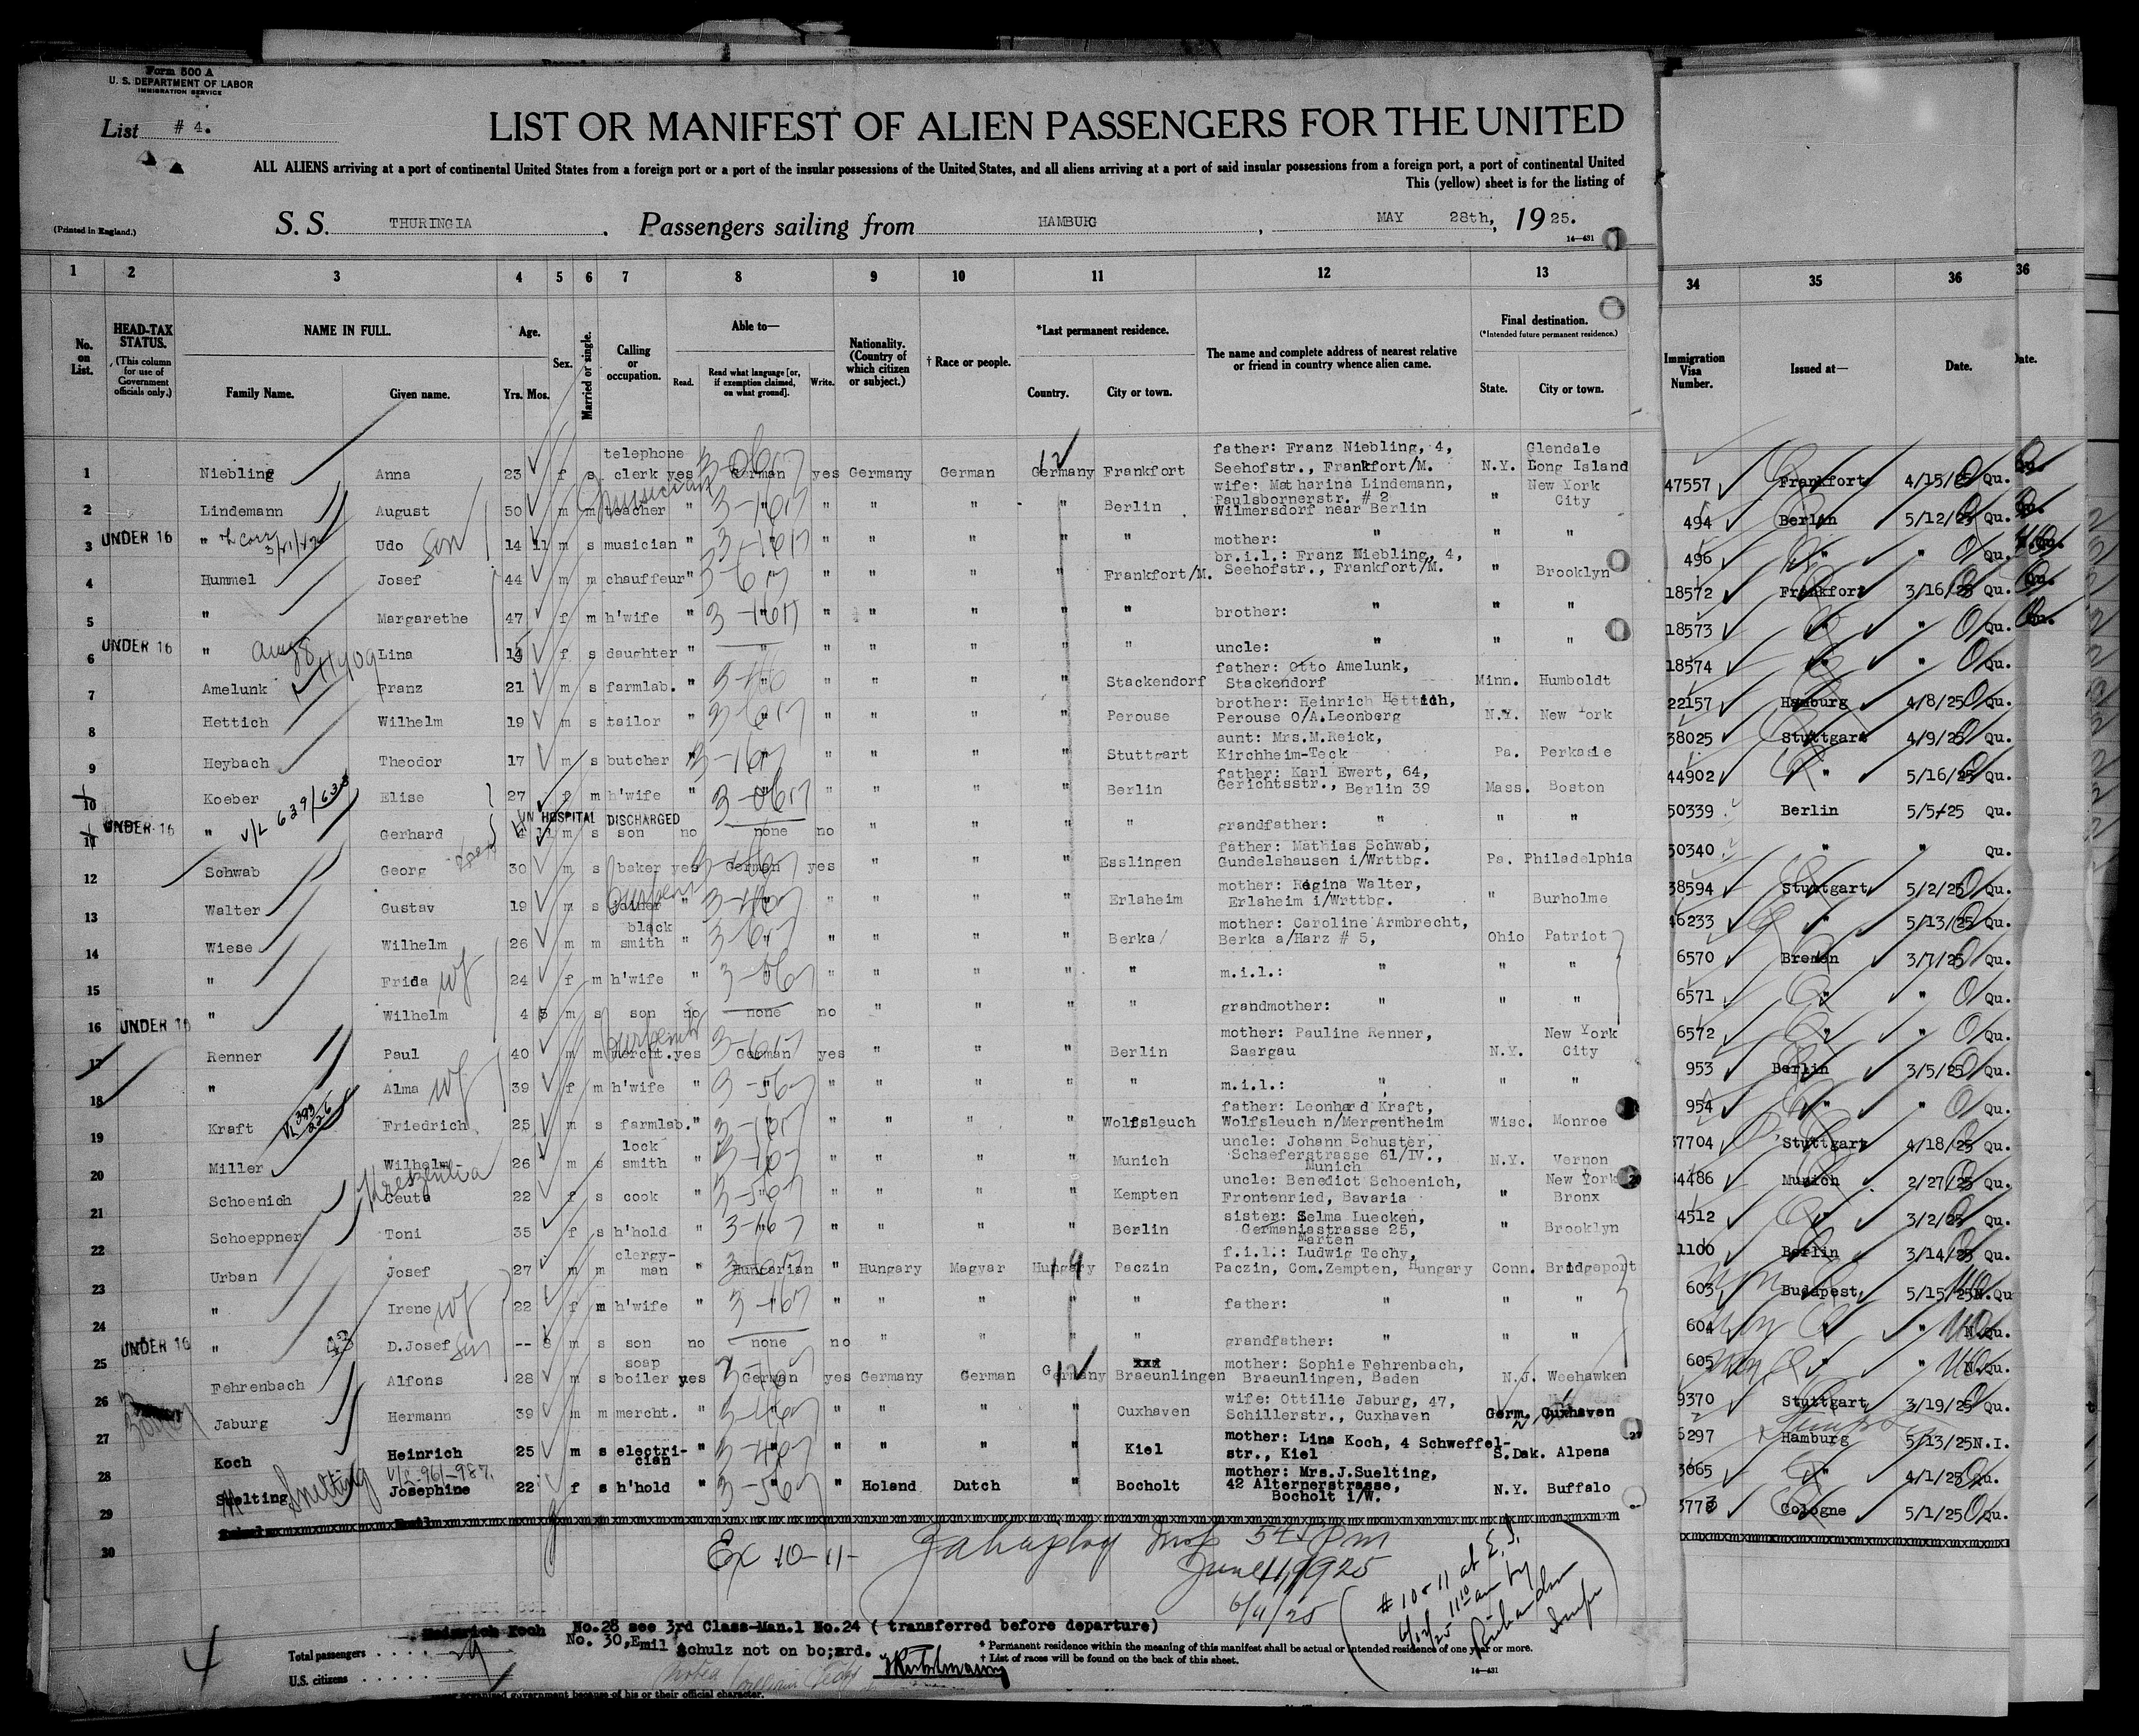 Form 500 A
U. S. DEPARTMENT OF LABOR
IMMIGRATION SERVICE
List # 4.
LIST OR MANIFEST OF ALIEN PASSENGERS FOR THE UNITED
ALL ALIENS arriving at a port of continental United States from a foreign port or a port of the insular possessions of the United States, and all aliens arriving at a port of said insular possessions from a foreign port, a port of continental United
This (yellow) sheet is for the listing of
(Printed in England.)
S. S. THURINGIA . Passengers sailing from HAMBURG , MAY 28th, 1925.
14—431
1 2 3 4 5 6 7 8 9 10 11 12 13 34 35 36 36
No. on List. HEAD-TAX STATUS. (This column for use of Government officials only.) NAME IN FULL. Family Name. Given name. Age. Yrs. Mos. Sex. Married or single. Calling or occupation. Able to— Read. Read what language [or, if exemption claimed, on what ground]. Write. Nationality. (Country of which citizen or subject.) † Race or people. *Last permanent residence. Country. City or town. The name and complete address of nearest relative or friend in country whence alien came. Final destination. (*Intended future permanent residence.) State. City or town. Immigration Visa Number. Issued at— Date. Date.
1 Niebling Anna 23 f s telephone clerk yes German yes Germany German Germany Frankfort father: Franz Niebling, 4, Seehofstr., Frankfort/M. N.Y. Glendale Long Island 47557 Frankfort 4/15/25 Qu.
2 Lindemann August 50 m m teacher physician " " " " " " Berlin wife: Matharina Lindemann, Paulsbornerstr. # 2 Wilmersdorf near Berlin " New York City 494 Berlin 5/12/25 Qu.
3 UNDER 16 " Udo son 14 11 m s musician " " " " " " " mother: " " " 496 " " Qu.
4 Hummel Josef 44 m m chauffeur " " " " " " Frankfort/M. br.i.l.: Franz Niebling, 4, Seehofstr., Frankfort/M. " Brooklyn 18572 Frankfort 3/16/25 Qu.
5 " Margarethe 47 f m h'wife " " " " " " " brother: " " " 18573 " " Qu.
6 UNDER 16 " Lina 14 f s daughter " " " " " " " uncle: " " " 18574 " " Qu.
7 Amelunk Franz 21 m s farmlab. " " " " " " Stackendorf father: Otto Amelunk, Stackendorf Minn. Humboldt 22157 Hamburg 4/8/25 Qu.
8 Hettich Wilhelm 19 m s tailor " " " " " " Perouse brother: Heinrich Hettich, Perouse O/A.Leonberg N.Y. New York 38025 Stuttgart 4/9/25 Qu.
9 Heybach Theodor 17 m s butcher " " " " " " Stuttgart aunt: Mrs.M.Reick, Kirchheim-Teck Pa. Perkasie 44902 " 5/16/25 Qu.
10 Koeber Elise 27 f m h'wife " " " " " " Berlin father: Karl Ewert, 64, Gerichtsstr., Berlin 39 Mass. Boston 50339 Berlin 5/5/25 Qu.
IN HOSPITAL DISCHARGED
11 UNDER 16 " V/L 639/638 Gerhard 4 11 m s son no none no " " " " grandfather: " " " 50340 " " Qu.
12 Schwab Georg 30 m s baker yes German yes " " " Esslingen father: Mathias Schwab, Gundelshausen i/Wrttbg. Pa. Philadelphia 38594 Stuttgart 5/2/25 Qu.
13 Walter Gustav 19 m s joiner " " " " " " Erlaheim mother: Regina Walter, Erlaheim i/Wrttbg. " Burholme 46233 " 5/13/25 Qu.
14 Wiese Wilhelm 26 m m black smith " " " " " " Berka mother: Caroline Armbrecht, Berka a/Harz # 5, Ohio Patriot 6570 Bremen 3/7/25 Qu.
15 " Frida wf 24 f m h'wife " " " " " " " m.i.l.: " " " 6571 " " Qu.
16 UNDER 16 " Wilhelm 4 m s son no none no " " " " grandmother: " " " 6572 " " Qu.
17 Renner Paul 40 m m mercht. yes German yes " " " Berlin mother: Pauline Renner, Saargau N.Y. New York City 953 Berlin 3/5/25 Qu.
18 " Alma wf 39 f m h'wife " " " " " " " m.i.l.: " " " 954 " " Qu.
19 Kraft Friedrich 25 m s farmlab. " " " " " " Wolfsleuch father: Leonhard Kraft, Wolfsleuch n/Mergentheim Wisc. Monroe 37704 Stuttgart 4/18/25 Qu.
20 Miller Wilhelm 26 m s lock smith " " " " " " Munich uncle: Johann Schuster, Schaeferstrasse 61/IV., Munich N.Y. Vernon 34486 Munich 2/27/25 Qu.
21 Schoenich Ceuta Kreszentia 22 f s cook " " " " " " Kempten uncle: Benedict Schoenich, Frontenried, Bavaria " New York Bronx 4512 " 3/2/25 Qu.
22 Schoeppner Toni 35 f s h'hold " " " " " " Berlin sister: Selma Luecken, Germaniastrasse 25, Marten " Brooklyn 1100 Berlin 3/14/25 Qu.
23 Urban Josef 27 m m clergy- man " Hungarian " Hungary Magyar Hungary Paczin f.i.l.: Ludwig Techy, Paczin, Com.Zempten, Hungary Conn. Bridgeport 603 Budapest 5/15/25 N.Qu
24 " Irene wf 22 f m h'wife " " " " " " " father: " " " 604 " " N.Qu.
25 UNDER 16 " D.Josef son -- 8 m s son no none no " " " " grandfather: " " " 605 " " N.Qu.
26 Fehrenbach Alfons 28 m s soap boiler yes German yes Germany German Germany xxx Braeunlingen mother: Sophie Fehrenbach, Braeunlingen, Baden N.J. Weehawken 9370 Stuttgart 3/19/25 Qu.
27 Jaburg Hermann 39 m m mercht. " " " " " " Cuxhaven wife: Ottilie Jaburg, 47, Schillerstr., Cuxhaven Germ. Cuxhaven 6297 Hamburg 5/13/25 N.I.
28 Koch Heinrich 25 m s electri- cian " " " " " " Kiel mother: Lina Koch, 4 Schweffel- str., Kiel S.Dak. Alpena 3065 " 4/1/25 Qu.
29 Suelting Suelting V/L-961-987. Josephine 22 f s h'hold " " " Holand Dutch " Bocholt mother: Mrs.J.Suelting, 42 Alternerstrasse, Bocholt i/W. N.Y. Buffalo 3773 Cologne 5/1/25 Qu.
30
Ex 10-11- Insp 545 pm
June 11, 1925
6/11/25
# 10-11 at E.I.
6/12/25 11 10 am by
Richardson
Inspr
Heinrich Koch No.28 see 3rd Class-Man.1 No.24 ( transferred before departure)
No. 30, Emil Schulz not on bo;ard.
4
Total passengers . . . . 29
U.S. citizens . . . . .
* Permanent residence within the meaning of this manifest shall be actual or intended residence of one year or more.
† List of races will be found on the back of this sheet.
14—431